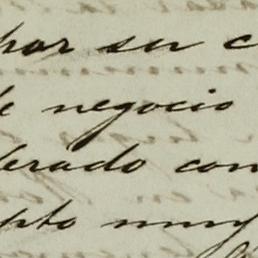 por su c
de negocio
derado con
pto muy